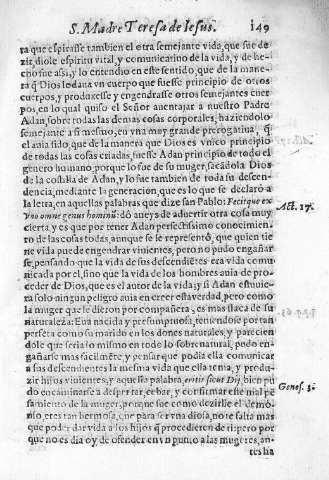 S. Madre Teresa de Iesus. 149
ra que espirasse tambien el otra semejante vida, que fue de
zir, diole espiritu vital, y comunicatiuo de la vida, y de he-
cho fue assi, y lo entendio en este sentido, que de la mane-
ra q̃ Dios le daua vn cuerpo que fuesse principio de otros
cuerpos, y produxesse y engendrasse otros semejantes cuer
pos, en lo qual quiso el Señor auentajar a nuestro Padre
Adan, sobre todas las demas cosas corporales, haziendolo
semejante a si mesmo, en vna muy grande prerogatiua, q̃
el auia sido, que de la manera que Dios es vnico principio
de todas las cosas criadas, fuesse Adan principio de todo el
genero humano, porque lo fue de su muger, sacádola Dios
de la costilla de Adan, y lo fue tambien de toda su descen-
dencia, mediante la generacion, que es lo que se declaró a
la letra, en aquellas palabras que dize san Pablo: Fecitque ex
vno omne genus hominũ: dõ aueys de aduertir otra cosa muy Act. 17.
cierta, y es que por tener Adan perfectissimo conocimien-
to de las cosas todas, aunque se le representó, que quien tie
ne vida puede engendrar viuientes, pero no pudo engañar-
se, pensando que la vida de sus descendiẽtes era vida comu
nicada por el, sino que la vida de los hombres auia de pro-
ceder de Dios, que es el autor de la vida; y si Adan estuuie
ra solo ningun peligro auia en creer esta verdad, pero como
la muger que le dieron por compañera, es mas flaca de su
naturaleza: Eua nacida y presumptuosa, teniendose por tan
perfeta como su marido en los dones naturales, y parecien
dole que seria lo mismo en todo lo sobre natural, pudo en-
gañarse mas facilmẽte, y pensar que podia ella comunicar
a sus descendientes la mesma vida que ella tenia, y produ-
zir hijos viuientes, y aquella palabra, eritis sicut Dij, bien pu Genes. 3.
do encaminarse a despertar, cebar, y confirmar este mal pe
samiento de la muger, porque fue como dezirle el demo-
nio, eres tan hermosa, que para ser vna diosa, no te falta mas
que poder dar vida a los hijos q̃ procedieren de ti: pero por
que no es dia oy de ofender en vn punto a las mugeres, an-
tes ha